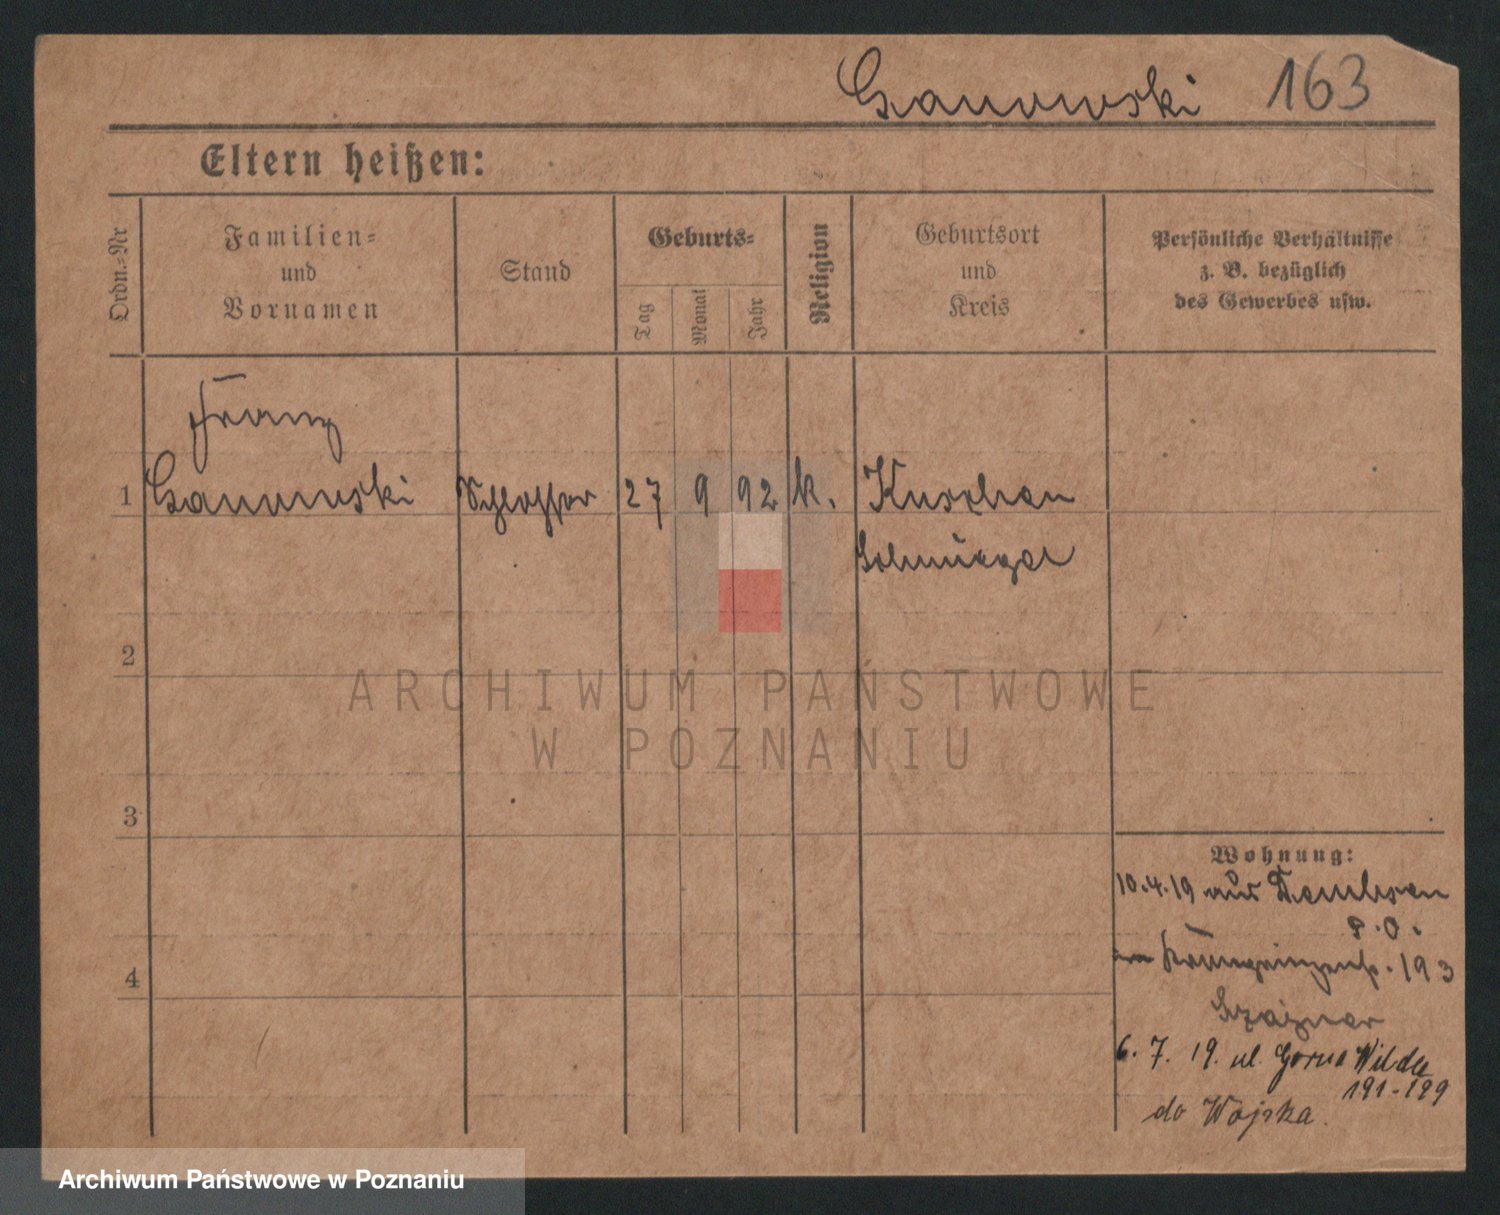 Ganowski 163
Eltern heißen:
Ordn.-Nr
Familien-
und
Vornamen
Stand
Geburts-
Tag
Monat
Jahr
Religion
Geburtsort
und
Kreis
Persönliche Verhältnisse
z. B. bezüglich
des Gewerbes usw.
Franz
1 Ganowski Schlosser 27 9 92 k. Kuschen
Schmiegel
2
ARCHIWUM PAŃSTWOWE
W POZNANIU
3
Wohnung:
10.4.19 aus Dembsen
P.O.
4
Kronprinzenstr. 193
6. 7. 19. ul. Gorna Wilda
191-199
do Wojska.
Archiwum Państwowe w Poznaniu